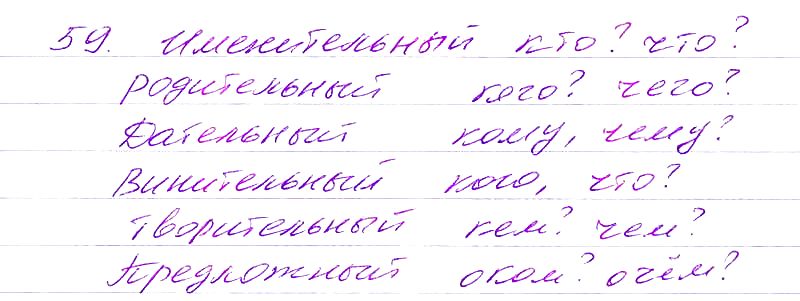 59. Именительный кто? что?
Родительный кого? чего?
Дательный кому, чему?
Винительный кого, что?
Творительный кем? чем?
Предложный оком? очём?